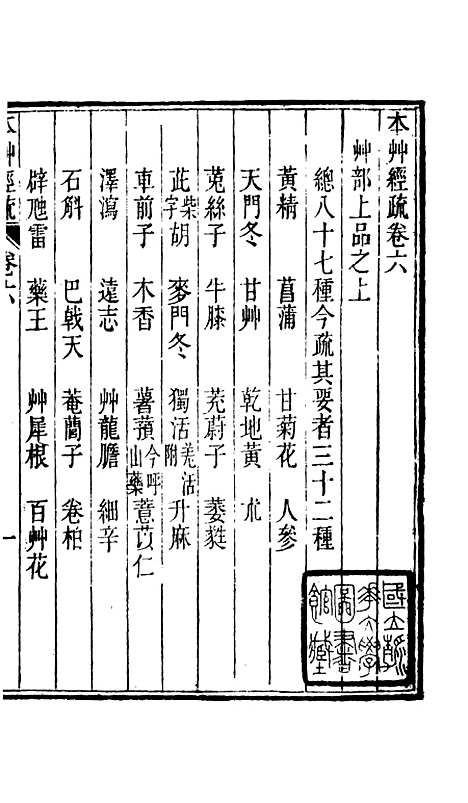 本艸經疏卷六
艸部上品之上
總八十七種今疏其要者三十二種
黃精 菖蒲 甘菊花 人參
天門冬 甘艸 乾地黃 朮
菟絲子 牛膝 茺蔚子 萎蕤
茈柴字胡 麥門冬 獨活羌活附 升麻
車前子 木香 薯蕷今呼山藥 薏苡仁
澤瀉 遠志 艸龍膽 細辛
石斛 巴戟天 菴䕡子 卷柏
辟虺雷 藥王 艸犀根 百艸花
本艸經疏 卷六 一
國立清華大學圖書館藏